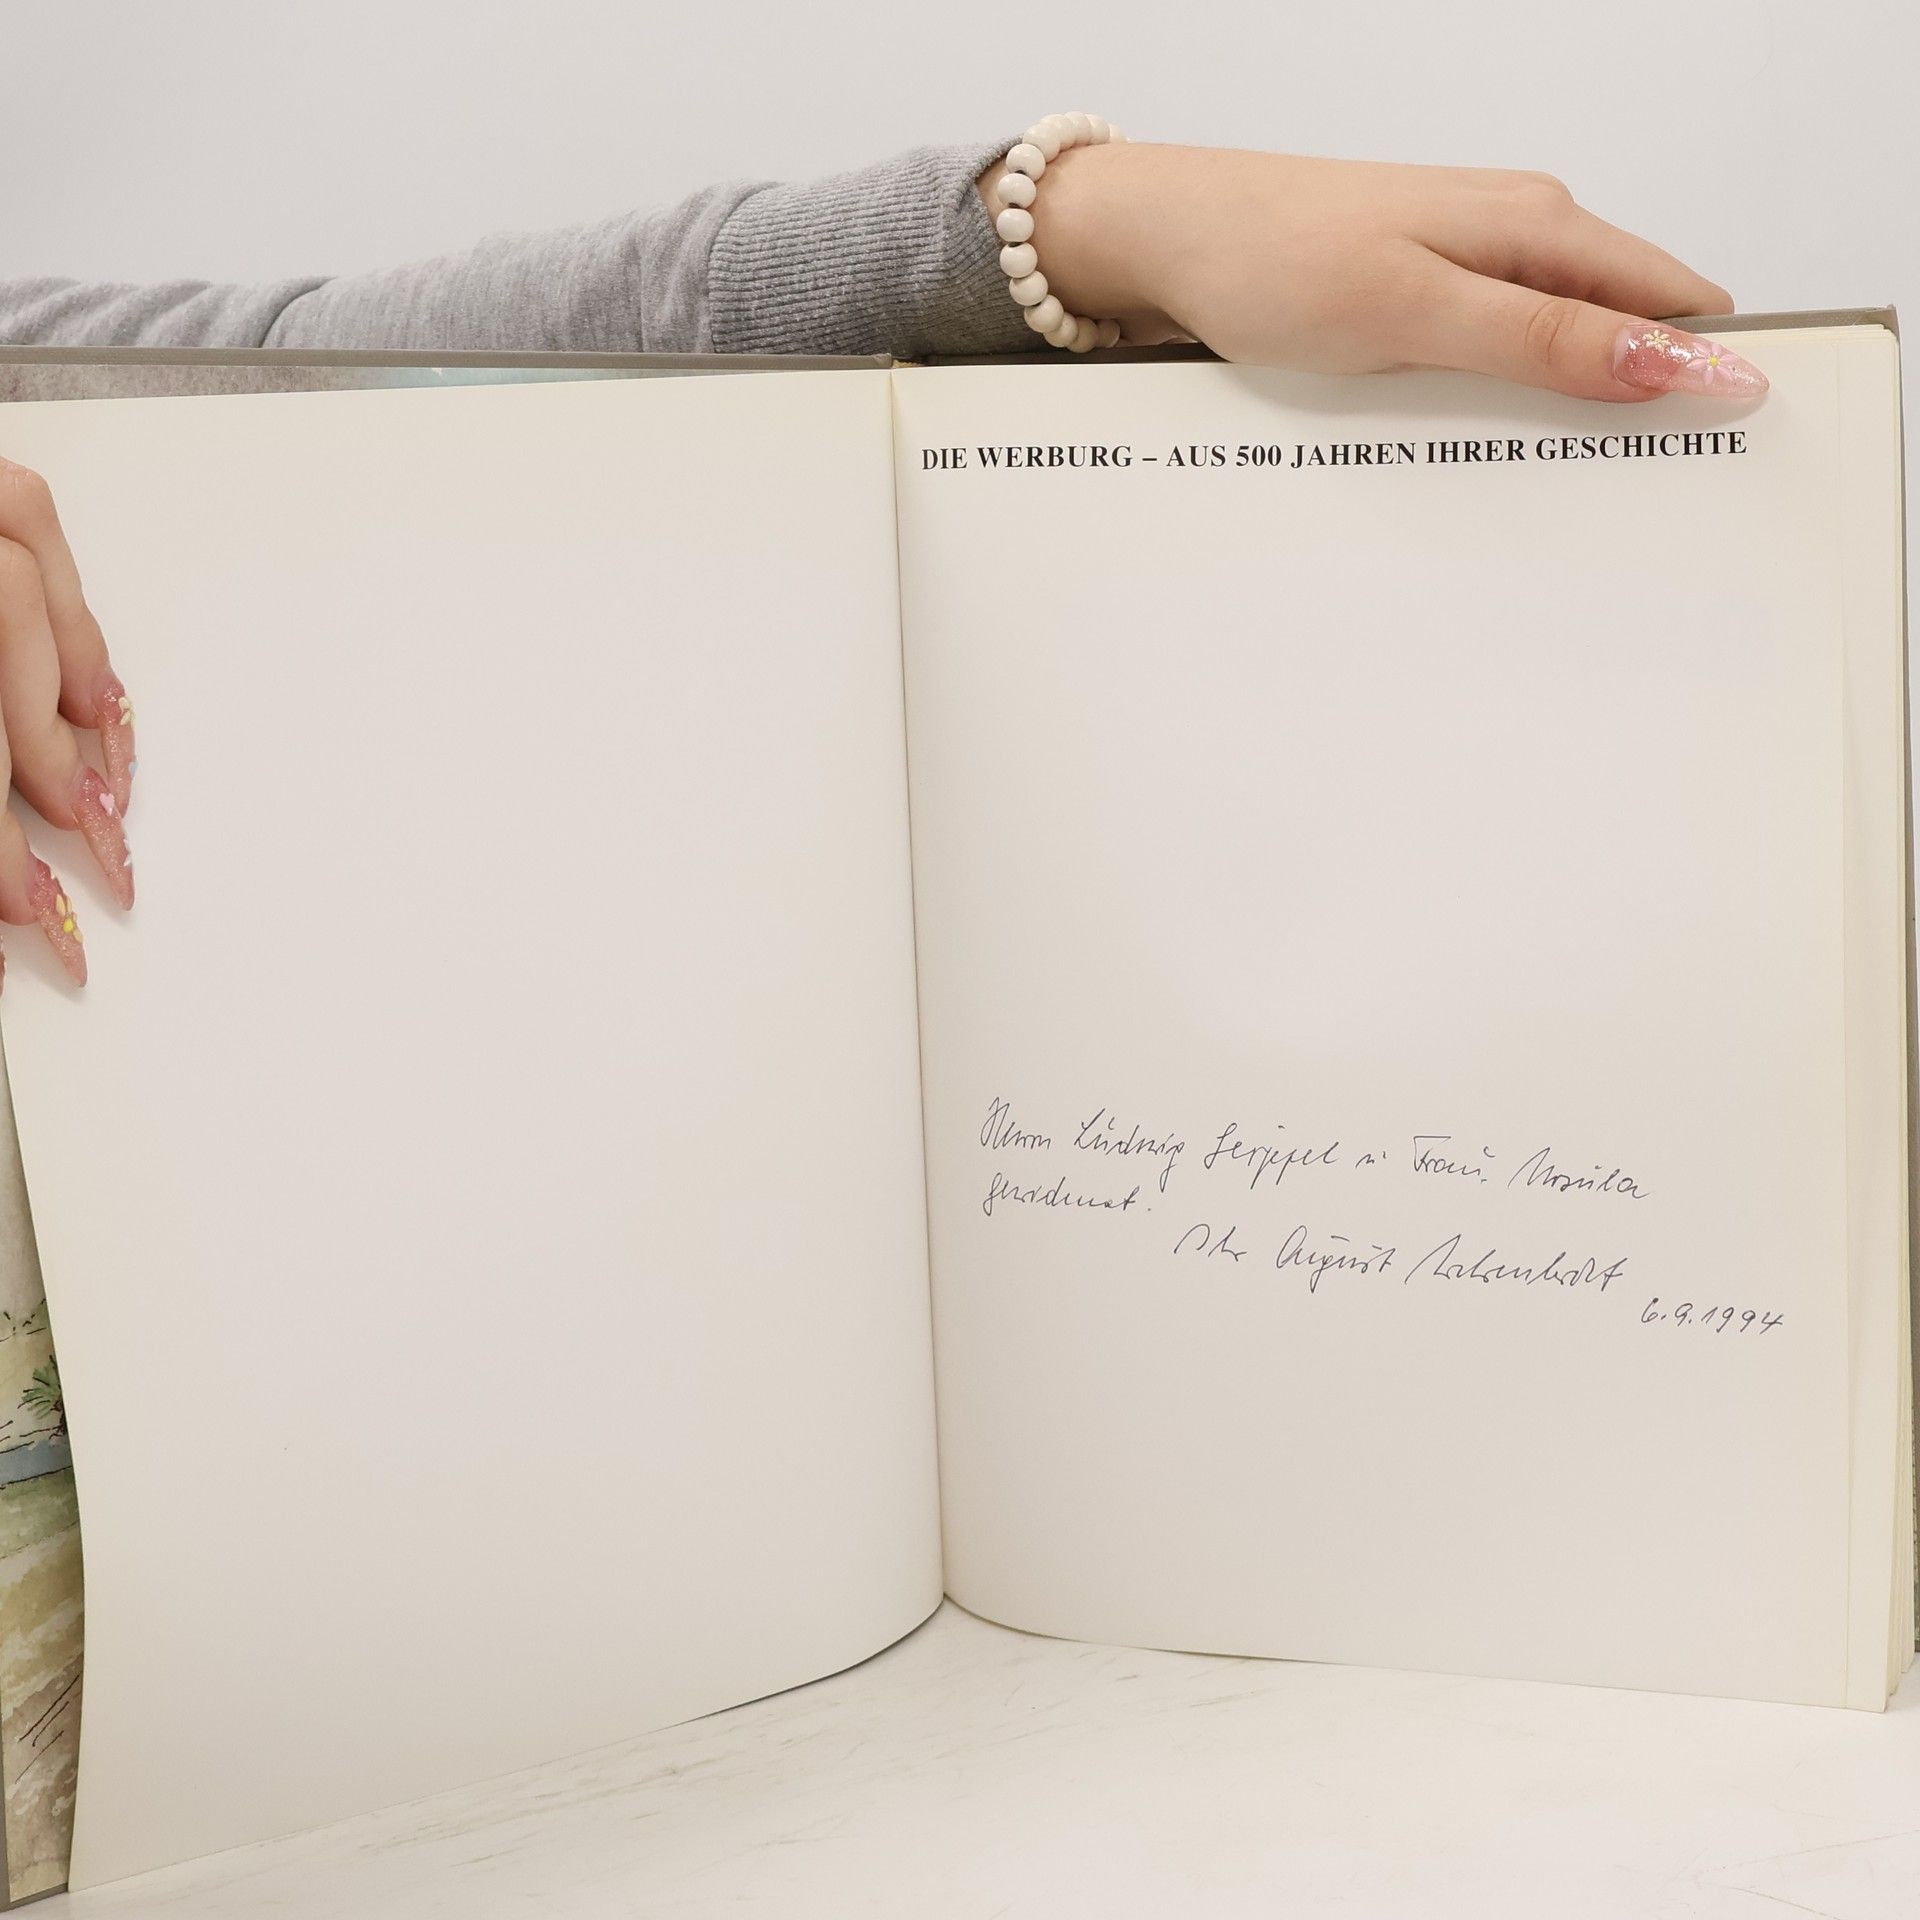 DIE WERBURG – AUS 500 JAHREN IHRER GESCHICHTE
Herrn Ludwig u. Frau Ursula
gewidmet.
Ihr August
6.9.1994